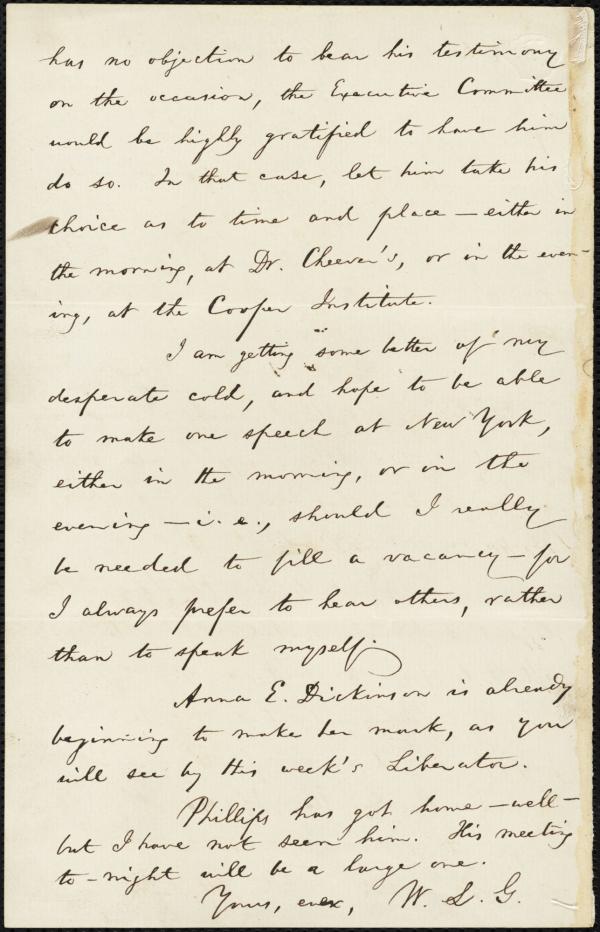 has no objection to bear his testimony
on the occasion, the Executive Committee
would be highly gratified to have him
do so. In that case, let him take his
choice as to time and place — either in
the morning, at Dr. Cheever's, or in the even-
ing, at the Cooper Institute.
I am getting some better of my
desperate cold, and hope to be able
to make one speech at New York,
either in the morning, or in the
evening — i.e., should I really
be needed to fill a vacancy — for
I always prefer to hear others, rather
than to speak myself.
Anna E. Dickinson is already
beginning to make her mark, as you
will see by this week's Liberator.
Phillips has got home — well —
but I have not seen him. His meeting
to-night will be a large one.
Yours, ever, W. L. G.